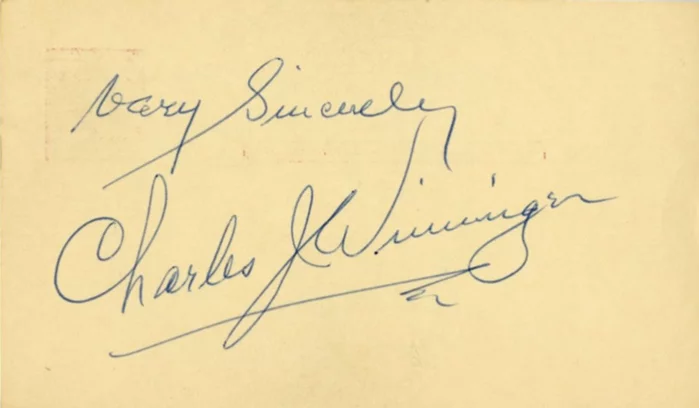 Very Sincerely
Charles J Winninger